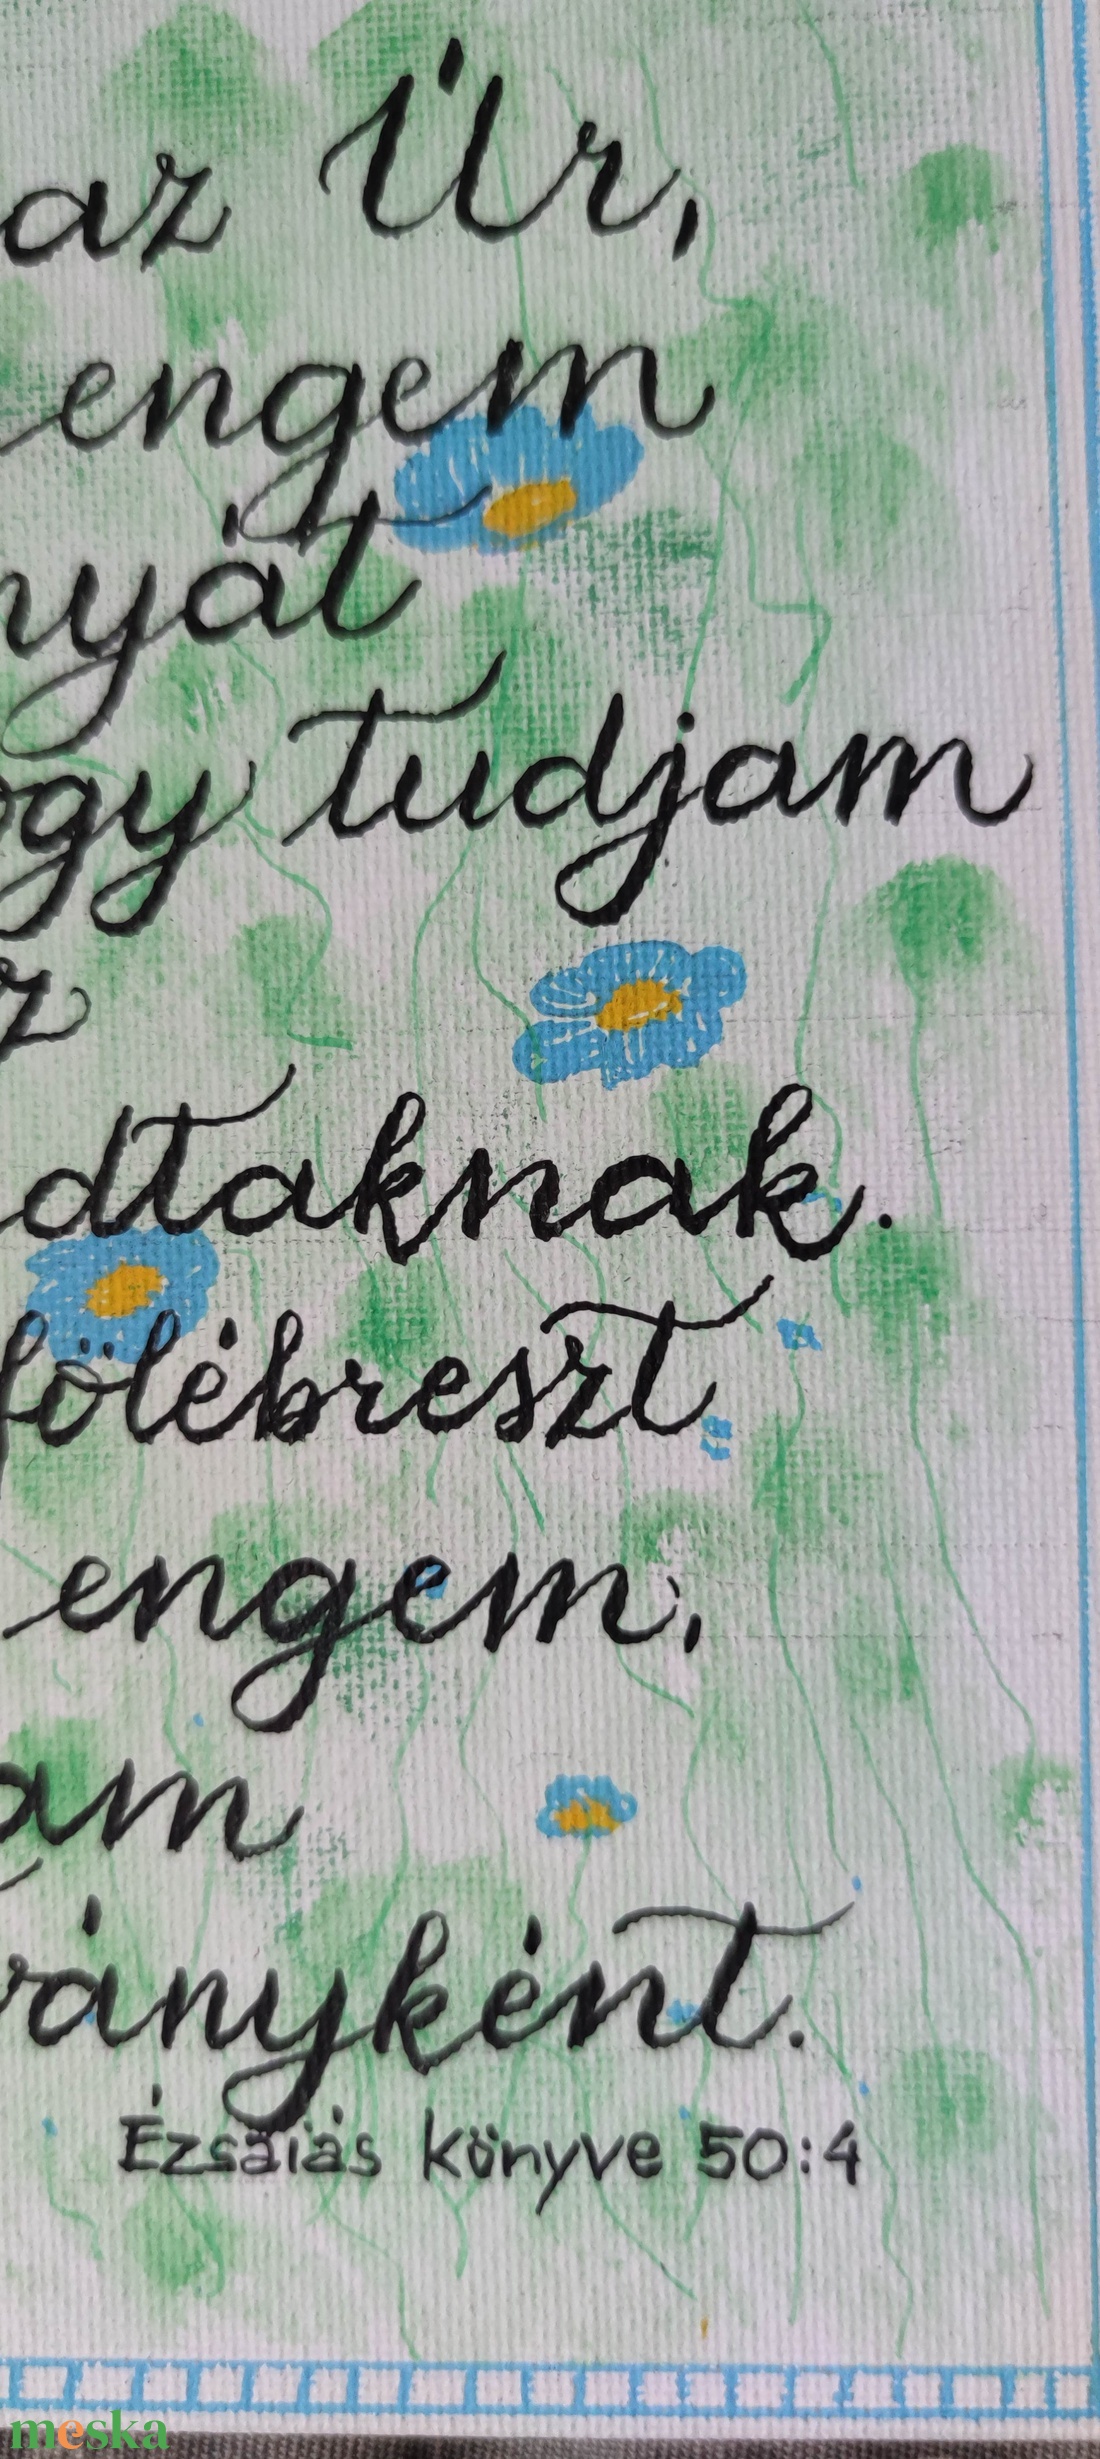 az Úr,
engem
nyát
ogy tudjam
z
dtaknak.
fölébreszt
engem,
am
ványként.
Ézsaiás könyve 50:4
meska